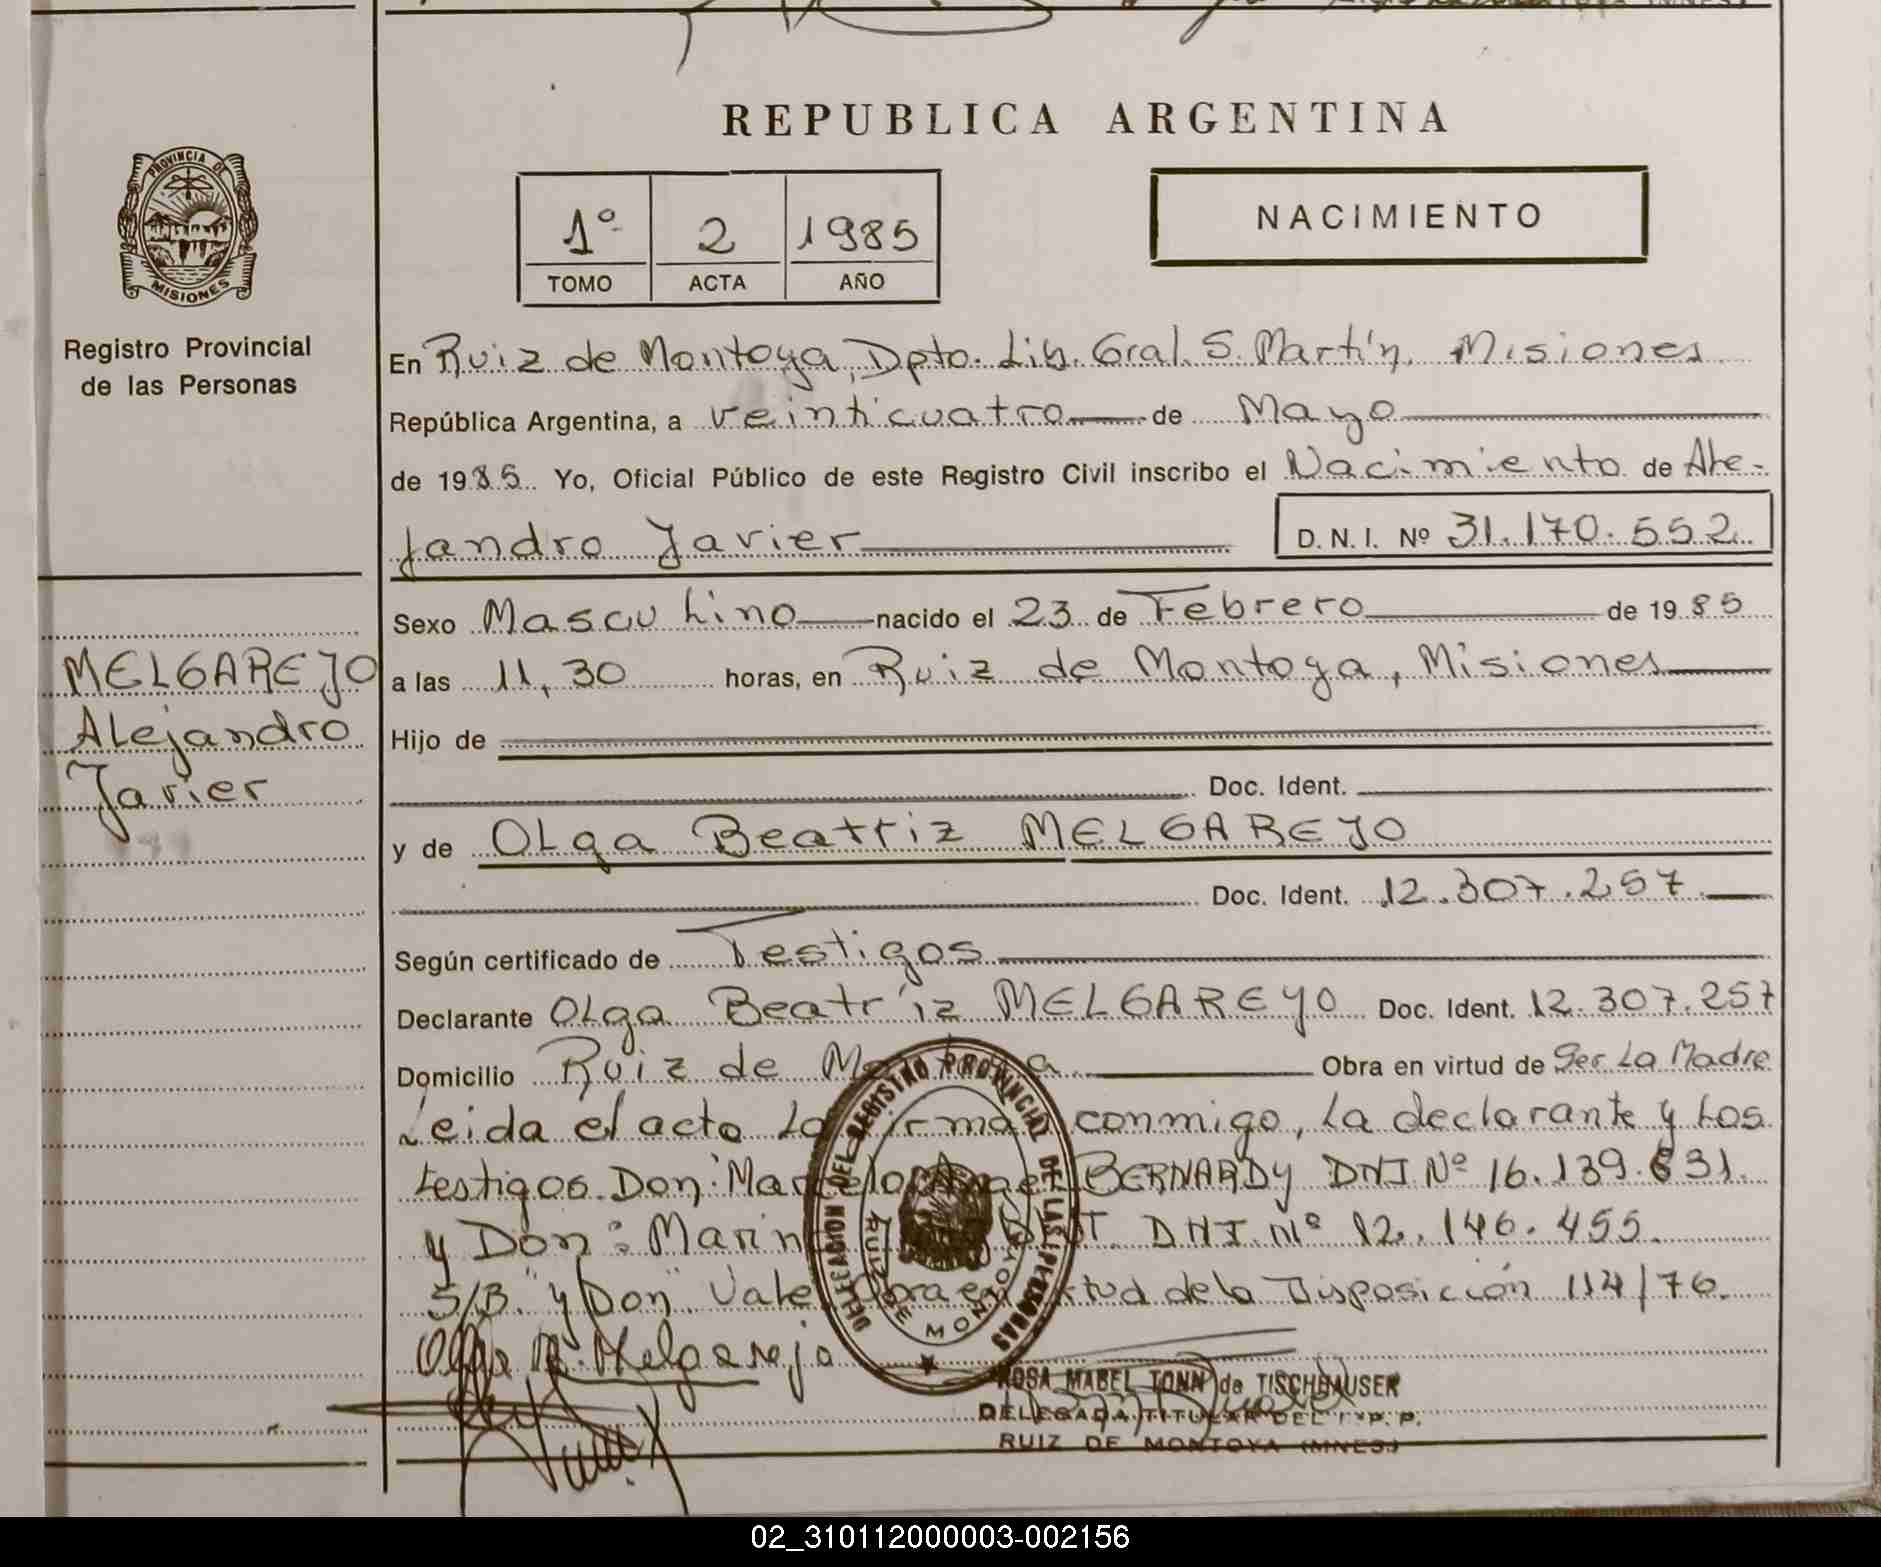 REPUBLICA ARGENTINA
PROVINCIA DE
MISIONES
Registro Provincial
de las Personas
1º 2 1985
TOMO ACTA AÑO
NACIMIENTO
En Ruiz de Montoya, Dpto. Lib. Gral. S. Martín, Misiones
República Argentina, a veinticuatro de Mayo
de 1985. Yo, Oficial Público de este Registro Civil inscribo el Nacimiento de Ale-
jandro Javier D. N. I. Nº 31.170.552
MELGAREJO
Alejandro
Javier
Sexo Masculino nacido el 23 de Febrero de 1985
a las 11,30 horas, en Ruiz de Montoya, Misiones
Hijo de
Doc. Ident.
y de Olga Beatriz MELGAREJO
Doc. Ident. 12.307.257
Según certificado de Testigos
Declarante Olga Beatriz MELGAREJO Doc. Ident. 12.307.257
Domicilio Ruiz de Montoya Obra en virtud de Ser La Madre
Leida el acta La firman conmigo, la declarante y los
testigos. Don: Marcelo BERNARDY DNI Nº 16.139.631.
y Don: DNI Nº 12.146.455.
S/B. "y Don". Vale. Obra en virtud de la Disposición 114/76.
Olga B. Melgarejo
DELEGACION DEL REGISTRO PROVINCIAL DE LAS PERSONAS
RUIZ DE MONTOYA
ROSA MABEL TONN de TISCHHAUSER
DELEGADA TITULAR DEL R. P. P.
RUIZ DE MONTOYA (MNES.)
02_310112000003-002156